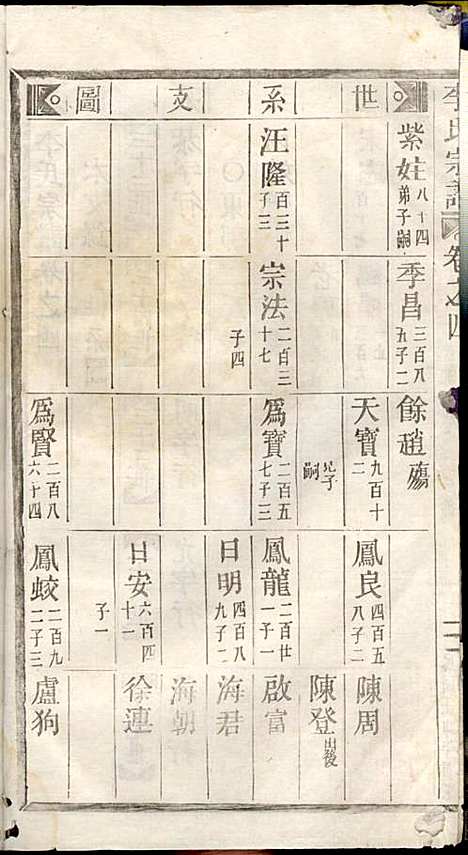 李氏宗譜 卷之四
世系支圖
紫妵 八十四 弟子嗣
季昌 三百八九 子二
餘趙 殤
天寶 九百十二
兄子嗣
鳳良 四百五八 子二
陳周
陳登 出後
汪隆 百三十 子三
宗法 二百三十七
子四
為寶 二百五七 子三
鳳龍 二百廿一 子一
啟富
日明 四百八九 子二
海君
海朝
日安 六百四十一
子一
徐連
為賢 二百八六十四
鳳蛟 二百九二 子三
盧狗